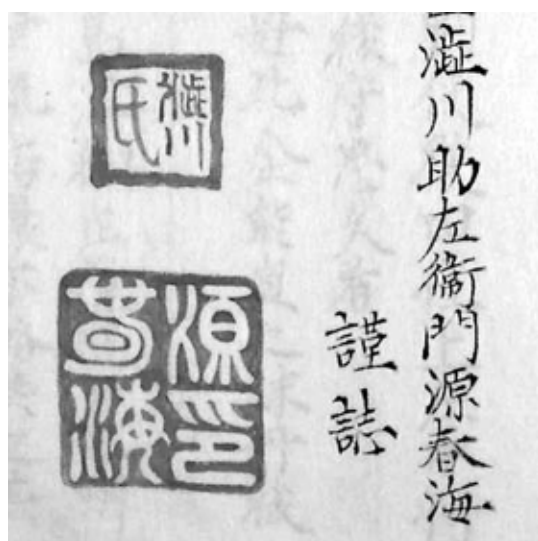 澁川助左衞門源春海
謹誌
澁川
氏
源印
春海